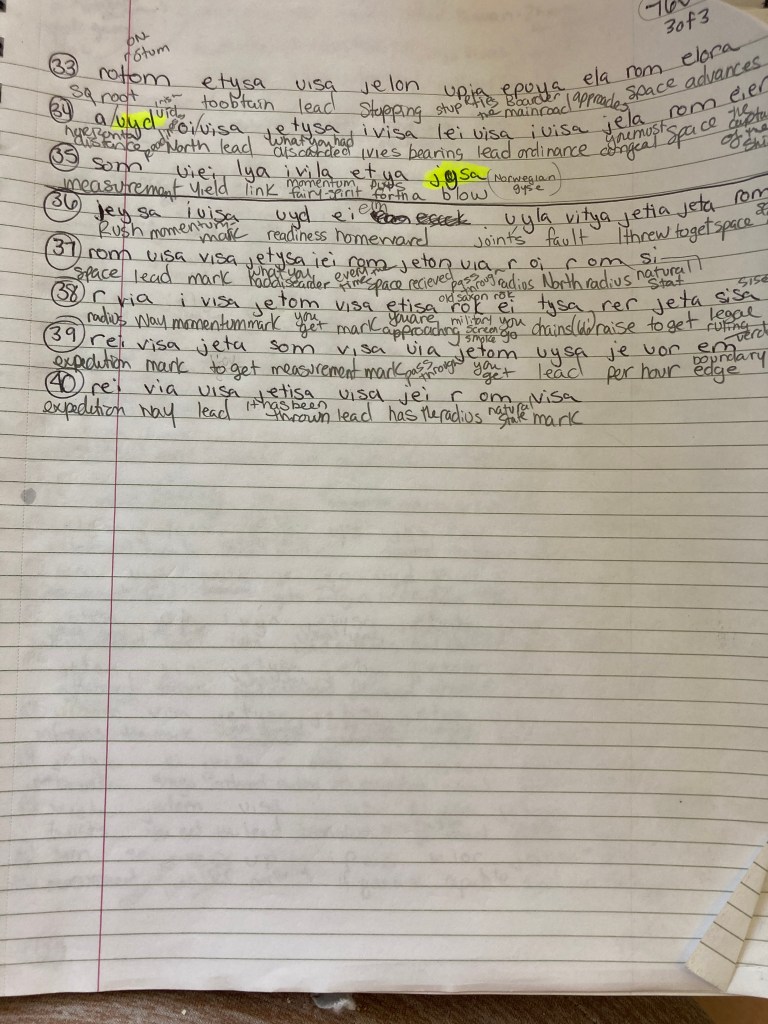 3 of 3
on
rotum
33 rotom etysa visa jelon upia epoya ela rom elora
sq root to obtain lead Stopping the main road space advances
34 a uyd oi/visa jetysa, ivisa lei visa ivisa jela rom eier
horizontal North lead what you had discarded ivies bearing lead ordinance you must congeal space the
distance of the
35 som viei lya ivila etya jysa (Norwegian gyse)
measurement yield link momentum fairy-joint forth a blow
36 jeysa ivisa uyd ei em uyla vitya jetia jeta rom
Rush momentum mark readiness homeward joints fault I threw to get space
37 rom visa visa jetysa jei rom jeton via r oi r om si
space lead mark what you had discarder every time space recieved pass through radius North radius natural stat
38 r via i visa jetom visa etisa rot ei tysa rer jeta sisa
radius way momentum mark you get mark you are approaching old saxon rot military screen smoke you go chains (w) raise to get legal ruling
39 rei visa jeta som visa via jetom vysa je vor em
expedition mark to get measurement mark pass through you get lead per hour boundary edge
40 rei via visa jetisa visa jei r om visa
expedition way lead it has been thrown lead has the radius natural state mark